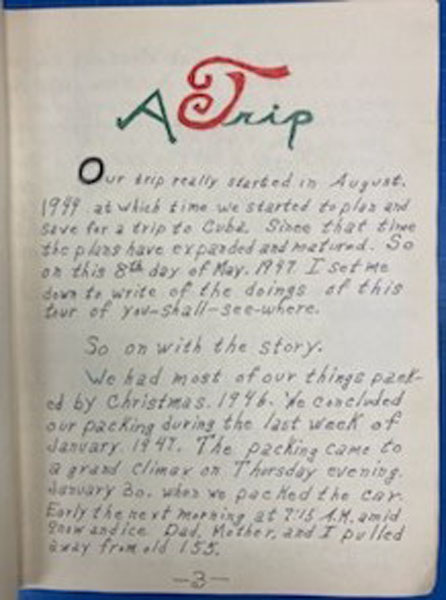 A Trip
Our trip really started in August,
1944 at which time we started to plan and
save for a trip to Cuba. Since that time
the plans have expanded and matured. So
on this 8th day of May, 1947 I set me
down to write of the doings of this
tour of you-shall-see-where.
So on with the story.
We had most of our things pack-
ed by Christmas, 1946. We concluded
our packing during the last week of
January, 1947. The packing came to
a grand climax on Thursday evening,
January 30, when we packed the car.
Early the next morning at 7:15 A.M. amid
snow and ice Dad, Mother, and I pulled
away from old 155.
-3-